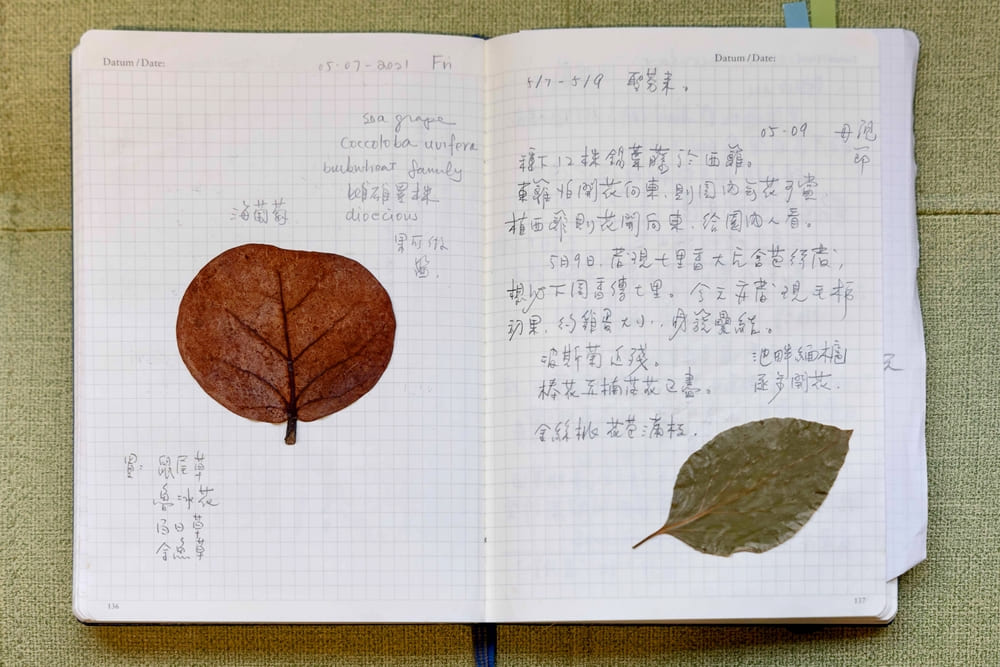 Datum / Date: 05-07-2021 Fri
sea grape
Coccoloba uvifera
buckwheat family
雌雄異株
dioecious
海葡萄
果可做
置:鼠尾草
魯冰花
百日草
金魚草
136
Datum / Date:
5/7 - 5/9
05-09 母親
節
種下12株錫葉藤於西籬。
東籬怕開花向東,則園內無花可
植西籬則花開向東,給園內人看。
5月9日,發現七里香大.含苞
想必下周香.七里。今天亦發現毛柿
幼果,約雞蛋大小,
波斯菊近殘。
池畔緬梔
樁花五楠落花已盡。
逐步開花.
金絲桃花苞滿枝.
137